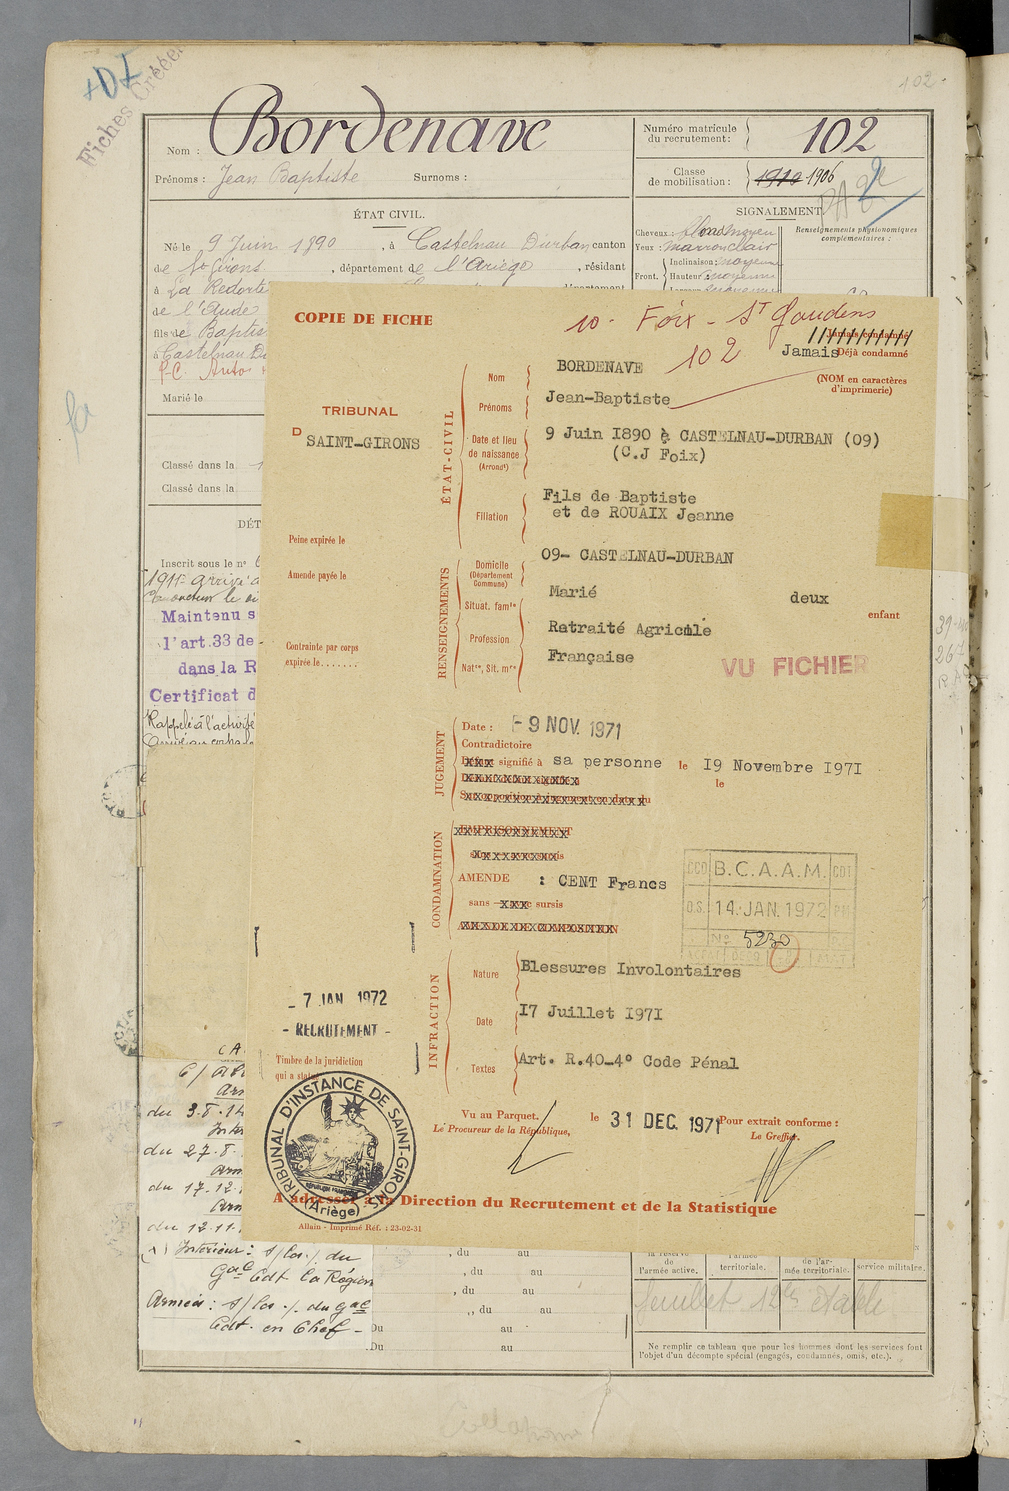 102.
+07
Fiches Créées
Nom : Bordenave
Prénoms : Jean Baptiste Surnoms :
Numéro matricule du recrutement : 102
Classe de mobilisation : 1910 1906
ÉTAT CIVIL.
SIGNALEMENT.
Né le 9 Juin 1890, à Castelnau Durban canton
de St Girons, département de l'Ariège, résidant
à La Redorte
de l'Aude
fils de Baptis
à Castelnau Du
Marié le
Cheveux :
Yeux : marron clair
Renseignements physionomiques complémentaires :
Front. Inclinaison : moyenne
Hauteur : moyenne
Classé dans la
Classé dans la
DÉT
Inscrit sous le n°
1911 arrivé a
Maintenu s
l'art.33 de
dans la R
Certificat d
Rappelé à l'activité
COPIE DE FICHE
10 - Foix - St Gaudens
102
Jamais condamné
Jamais Déjà condamné
(NOM en caractères d'imprimerie)
TRIBUNAL
D SAINT-GIRONS
Peine expirée le
Amende payée le
Contrainte par corps
expirée le.......
ÉTAT-CIVIL
Nom BORDENAVE
Prénoms Jean-Baptiste
Date et lieu de naissance (Arrondt) 9 Juin I890 à CASTELNAU-DURBAN (09)
(C.J Foix)
Filiation Fils de Baptiste
et de ROUAIX Jeanne
RENSEIGNEMENTS
Domicile (Département Commune) 09- CASTELNAU-DURBAN
Situat. famle Marié deux enfant
Profession Ratraité Agricole
Natté, Sit. mre Française
VU FICHIER
JUGEMENT
Date : - 9 NOV. 1971
Contradictoire
signifié à sa personne le I9 Novembre I97I
le
CONDAMNATION
EMPRISONNEMENT
AMENDE : CENT Francs
sans sursis
B.C.A.A.M.
14 JAN. 1972
N° 5230
INFRACTION
Nature Blessures Involontaires
Date I7 Juillet I97I
Textes Art. R.40-4° Code Pénal
- 7 JAN 1972
- RECRUTEMENT -
Timbre de la juridiction
qui a statué
TRIBUNAL D'INSTANCE DE SAINT-GIRONS
RÉPUBLIQUE FRANÇAISE
(Ariège)
Vu au Parquet.
Le Procureur de la République,
le 31 DEC. 1971
Pour extrait conforme :
Le Greffier.
A adresser à la Direction du Recrutement et de la Statistique
Allain - Imprimé Réf. : 23-02-31
du 3.8.14
du 27.8.
du 17.12.
du 12.11.
(1) Intérieur : s/les o/. du
Gal Cdt la Région
Armées : s/les o/. du Gal
Cdt en Chef -
, du au
, du au
, du au
, du au
Du au
Du au
la réserve de l'armée active.
l'armée territoriale.
de l'armée territoriale.
service militaire.
Ne remplir ce tableau que pour les hommes dont les services font
l'objet d'un décompte spécial (engagés, condamnés, omis, etc.).